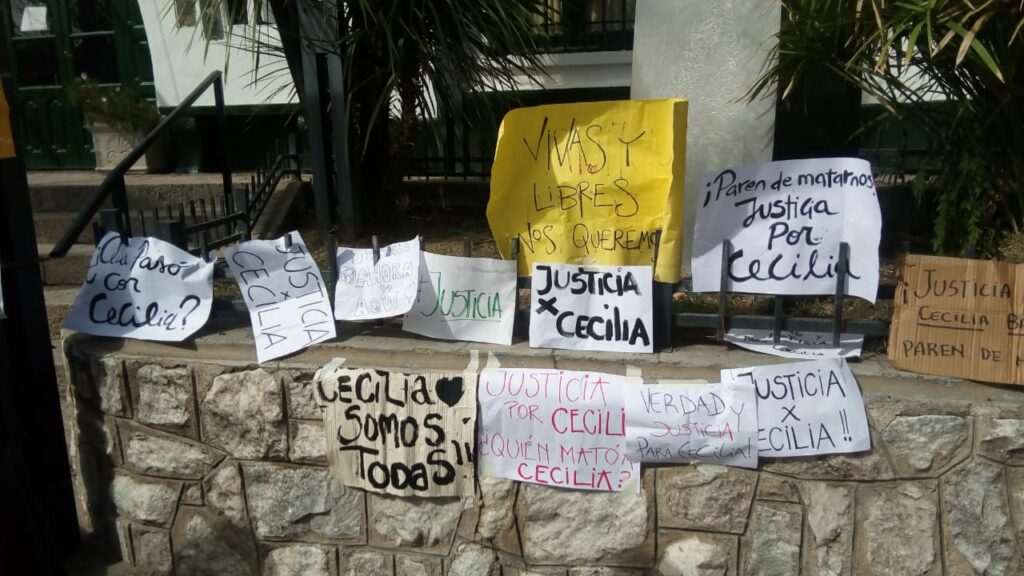 VIVAS Y
LIBRES
NOS QUEREMO
¡Paren de matarnos!
Justiça
Por
Cecilia
Pasó
con
Cecilia?
JUSTICIA
X
CECILIA
AHORA
Y
AQUÍ
JUSTICIA
JUSTICIA
X CECILIA
¡JUSTICIA
CECILIA B
PAREN DE M
CECILIA
SOMOS
TODAS!!
JUSTICIA
POR CECILI
¿QUIÉN MATÓ A
CECILIA?
VERDAD Y
JUSTICIA
PARA CECILIA!
JUSTICIA
X
CECILIA!!